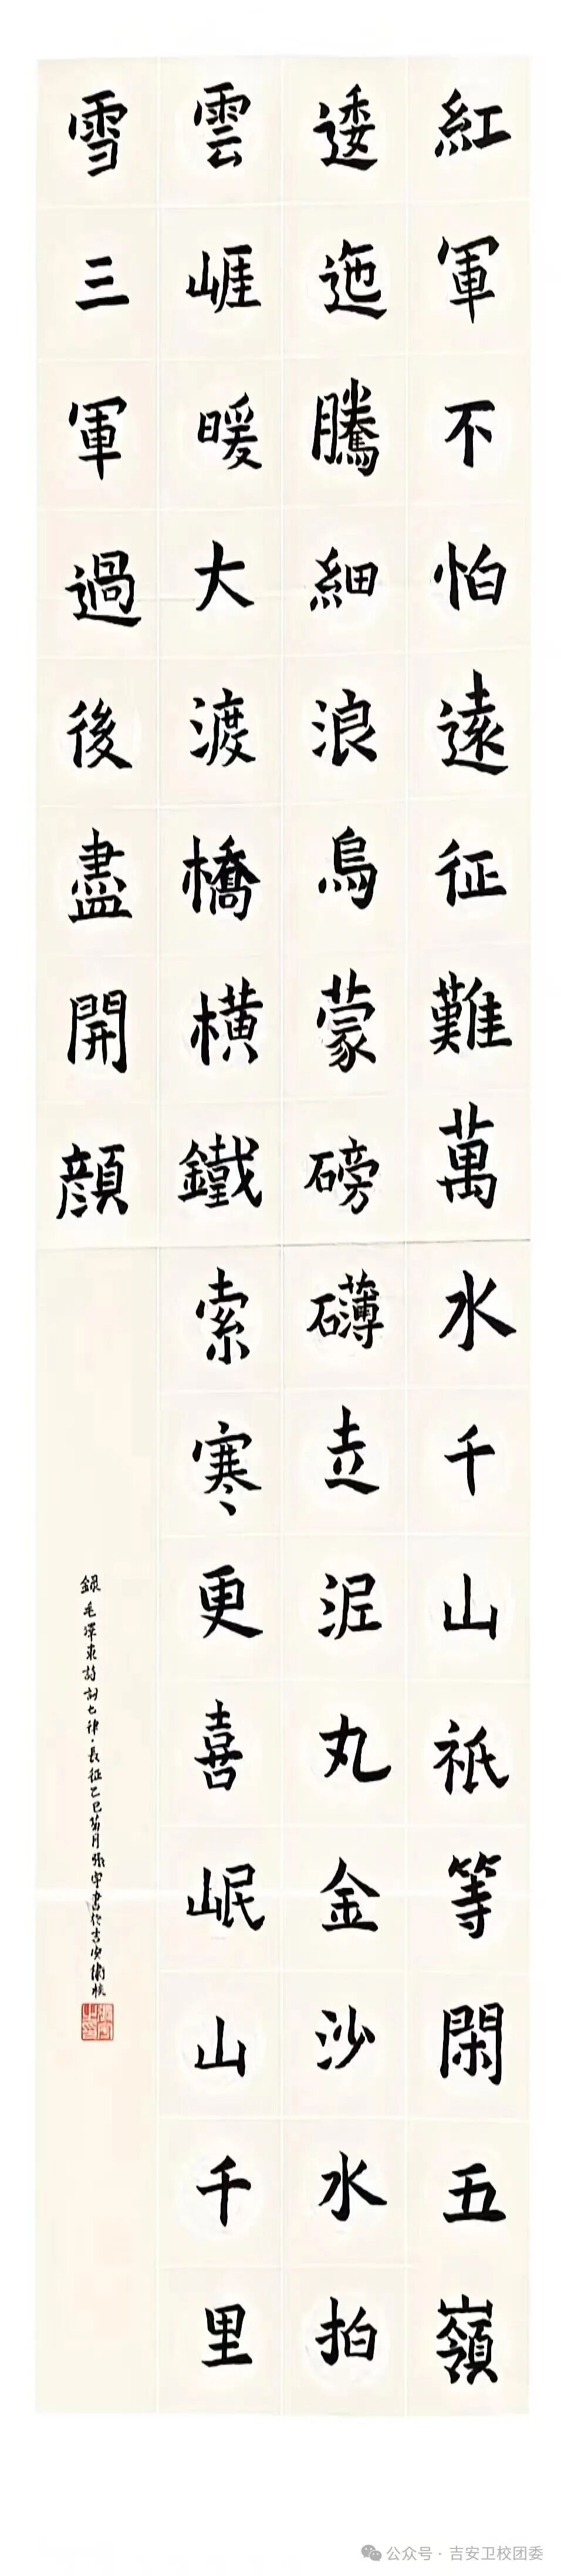 紅軍不怕遠征難萬水千山祇等閑五嶺
逶迤騰細浪烏蒙磅礴走泥丸金沙水拍
雲崕暖大渡橋橫鐵索寒更喜岷山千里
雪三軍過後盡開顔
錄毛澤東詩詞七律·長征乙巳菊月張宇書於吉安衛校
公众号·吉安卫校团委